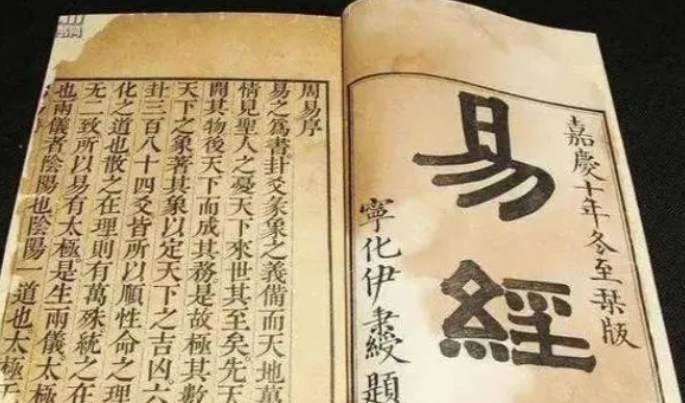 嘉慶十年冬至栞版
易經
寧化伊秉綬題
周易序
易之爲書卦爻彖象之義備而天地萬
情見聖人之憂天下來世其至矣先天
開其物後天下而成其務是故極其數
天下之象著其象以定天下之吉凶六
卦三百八十四爻皆所以順性命之理
化之道也散之在理則有萬殊統之在
无二致所以易有太極是生兩儀太
也兩儀者陰陽也陰陽一道也太極